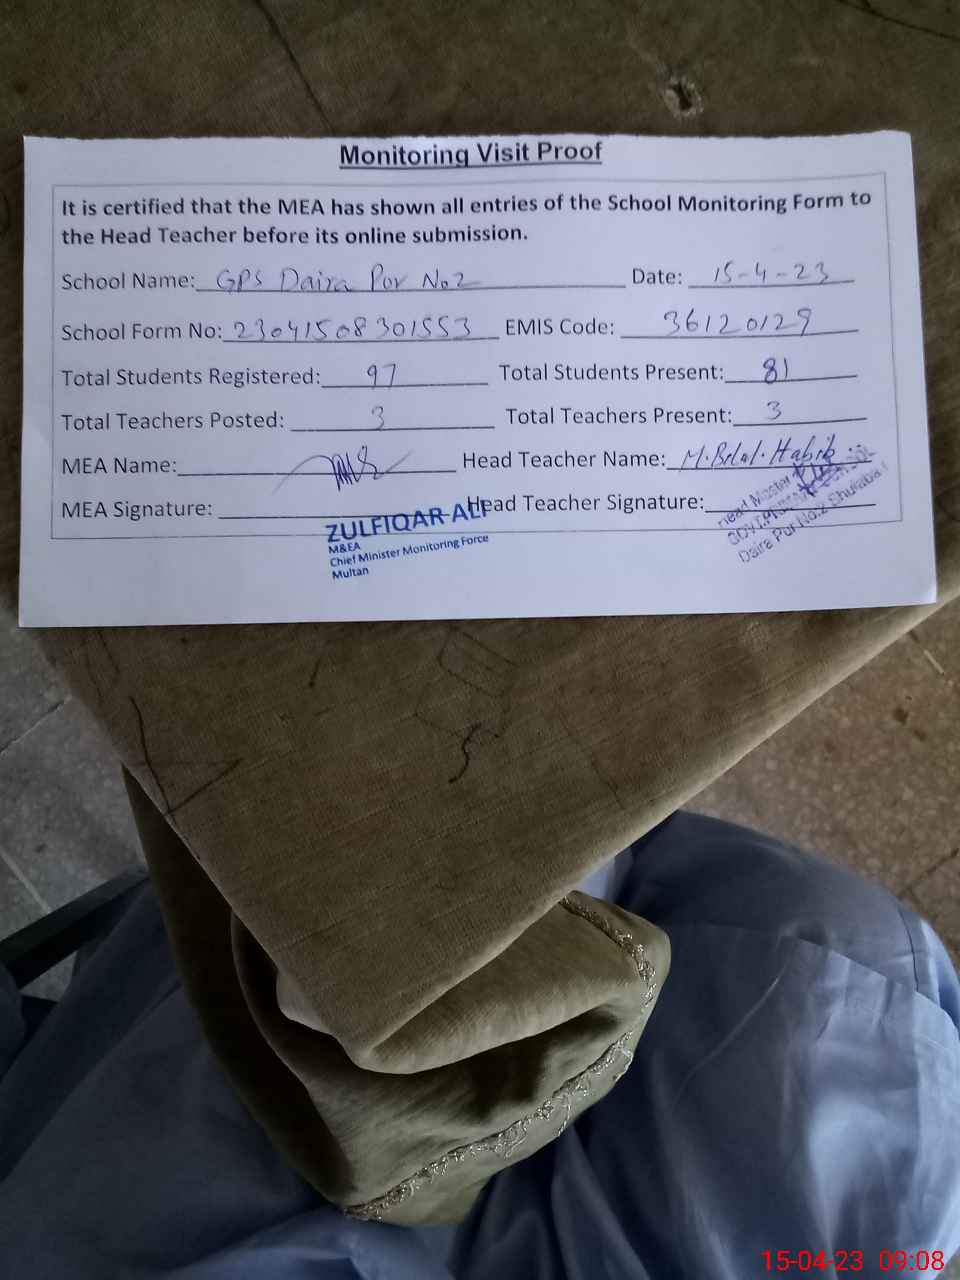 Monitoring Visit Proof
It is certified that the MEA has shown all entries of the School Monitoring Form to
the Head Teacher before its online submission.
School Name: GPS Daira Por No2 Date: 15-4-23
School Form No: 23041508301553 EMIS Code: 36120129
Total Students Registered: 97 Total Students Present: 81
Total Teachers Posted: 3 Total Teachers Present: 3
MEA Name: Head Teacher Name: M.Belal.Habib
MEA Signature: Head Teacher Signature:
ZULFIQAR ALI
M&EA
Chief Minister Monitoring Force
Multan
Head Master
GOVT. Primary School
Daira Pur No.2 Shujabad
15-04-23 09:08